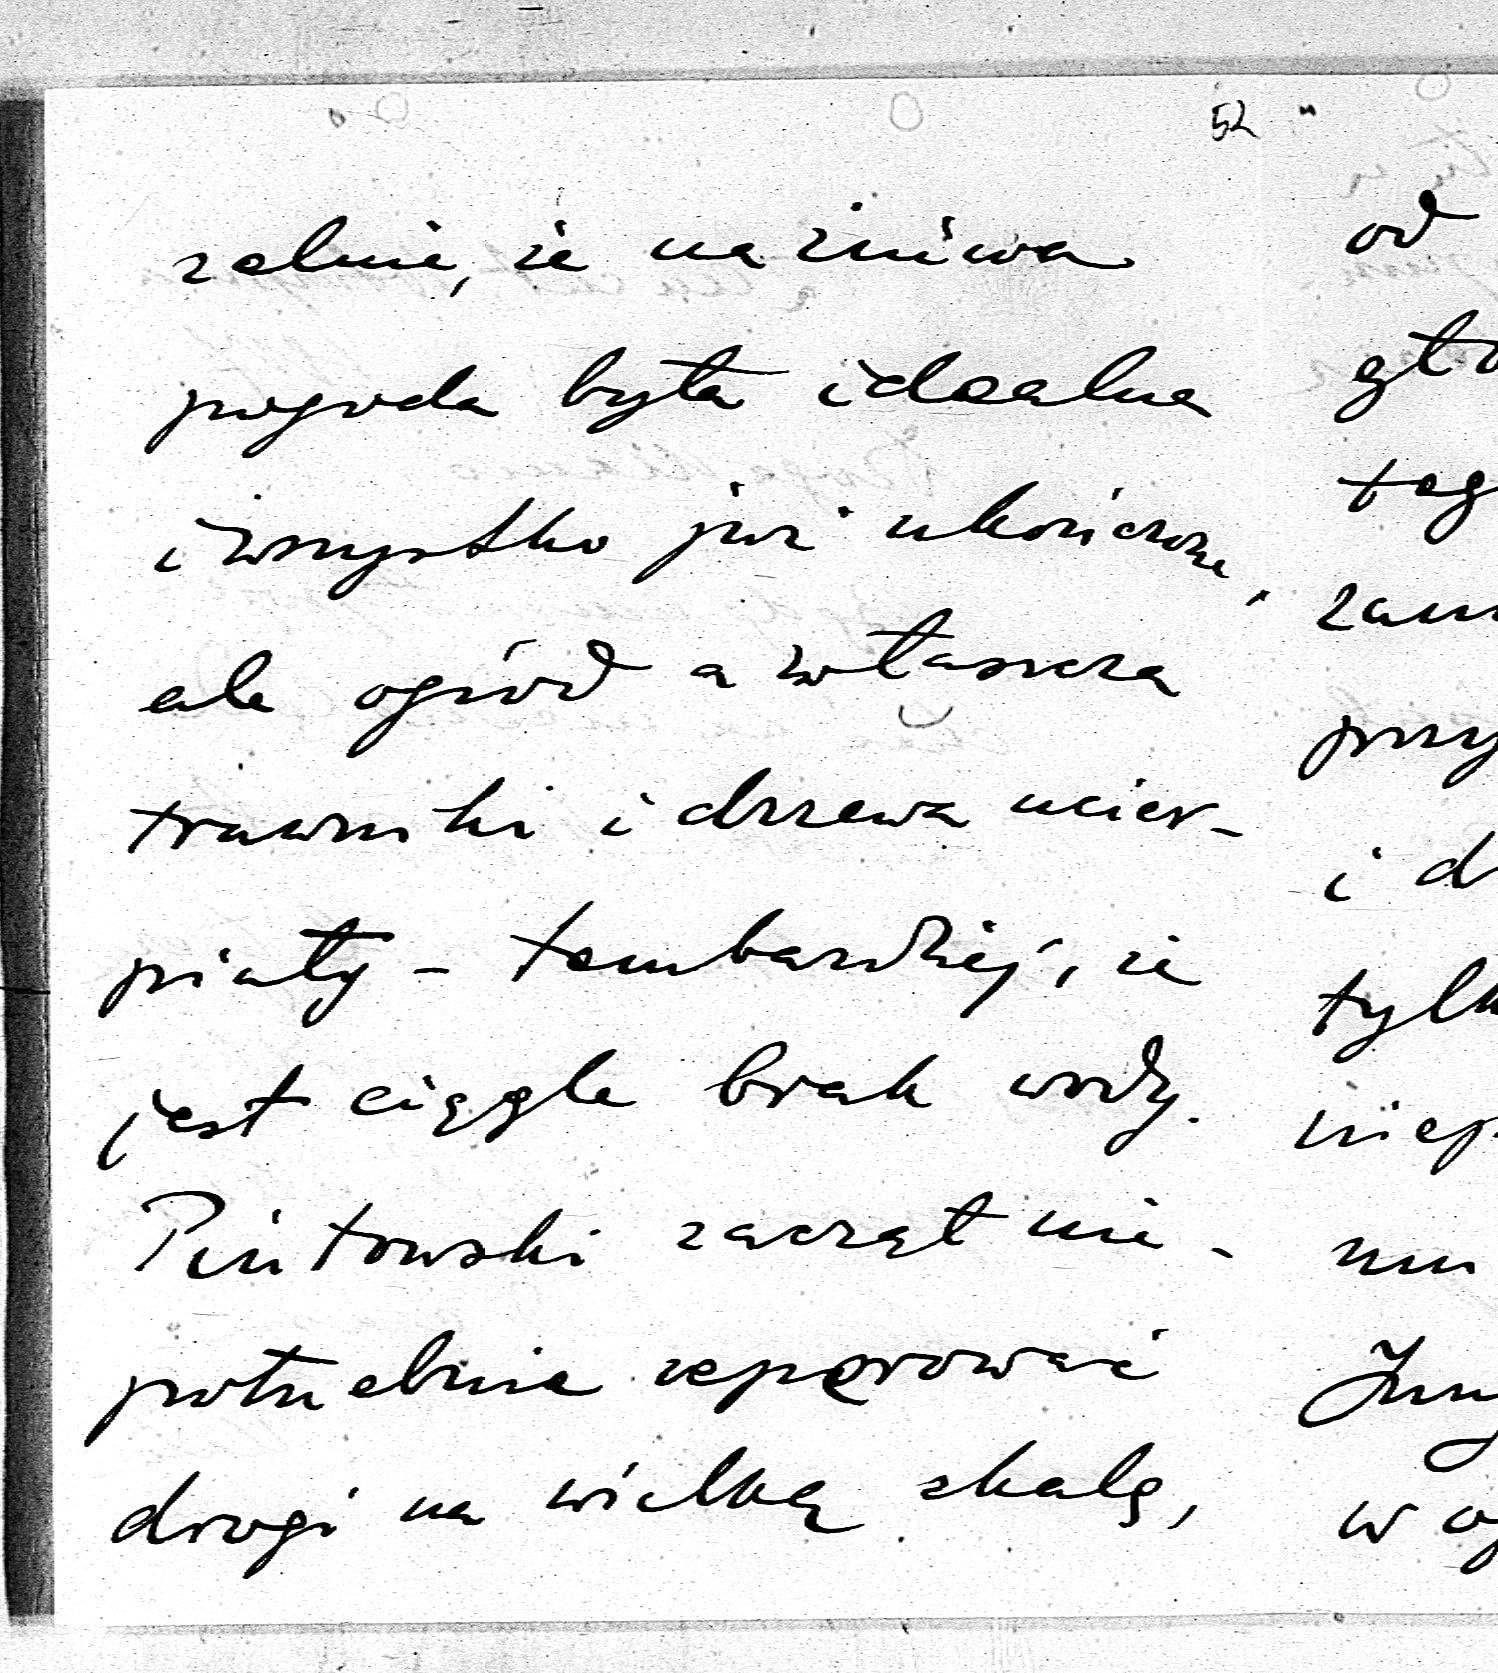 52
zalnie, że na żniwa
pogoda była idealna
i wszystko już ukończone,
ale ogród a zwłaszcza
trawniki i drzewa ucier-
piały - tembardziej, że
jest ciągle brak wody.
Piotowski zaczął nie-
potrzebnie reperować
drogi na wielką skalę,
od
gło
teg
zam
przy
i d
tylk
niep
mu
w og